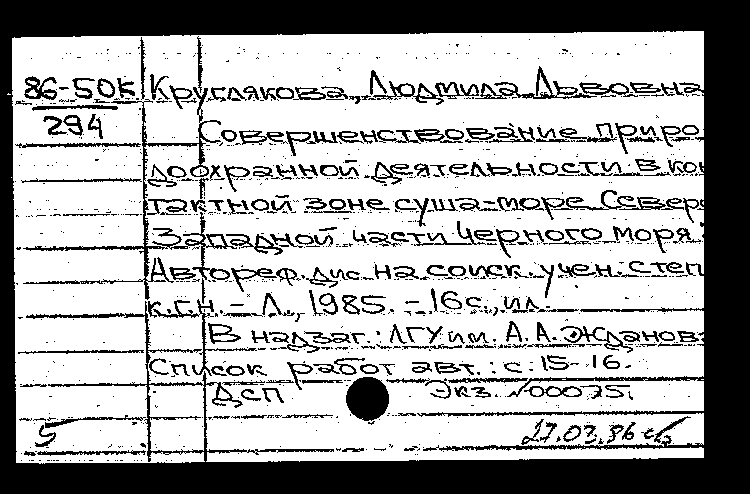 86-50к Круглякова, Людмила Львовна
294
Совершенствование приро
доохранной деятельности в кон
тактной зоне суша-море Северо
Западной части Черного моря:
Автореф. дис. на соиск. учен. степ
к.г.н. - Л., 1985. - 16с., ил.
В надзаг.: ЛГУ им. А.А. Жданова
Список работ авт.: с. 15-16.
ДСП Экз. №00075.
5 27.03.86